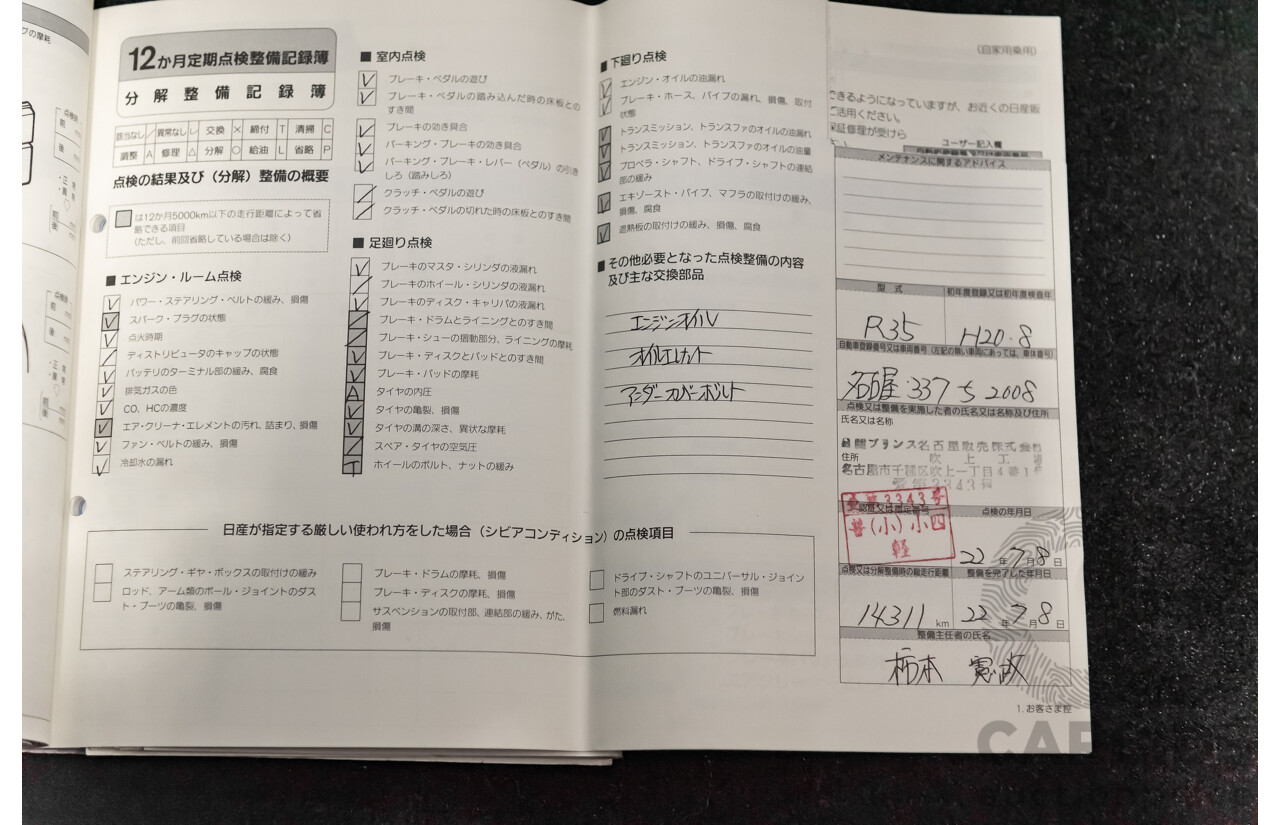 12か月定期点検整備記録簿
分解整備記録簿
該当なし ／ 異常なし レ 交換 × 締付 T 清掃 C
調整 A 修理 △ 分解 ○ 給油 L 省略 P
点検の結果及び（分解）整備の概要
は12か月5000km以下の走行距離によって省
略できる項目
（ただし、前回省略している場合は除く）
■ エンジン・ルーム点検
パワー・ステアリング・ベルトの緩み、損傷
スパーク・プラグの状態
点火時期
ディストリビュータのキャップの状態
バッテリのターミナル部の緩み、腐食
排気ガスの色
CO、HCの濃度
エア・クリーナ・エレメントの汚れ、詰まり、損傷
ファン・ベルトの緩み、損傷
冷却水の漏れ
■ 室内点検
ブレーキ・ペダルの遊び
ブレーキ・ペダルの踏み込んだ時の床板との
すき間
ブレーキの効き具合
パーキング・ブレーキの効き具合
パーキング・ブレーキ・レバー（ペダル）の引き
しろ（踏みしろ）
クラッチ・ペダルの遊び
クラッチ・ペダルの切れた時の床板とのすき間
■ 足廻り点検
ブレーキのマスタ・シリンダの液漏れ
ブレーキのホイール・シリンダの液漏れ
ブレーキのディスク・キャリパの液漏れ
ブレーキ・ドラムとライニングとのすき間
ブレーキ・シューの摺動部分、ライニングの摩耗
ブレーキ・ディスクとパッドとのすき間
ブレーキ・パッドの摩耗
タイヤの内圧
タイヤの亀裂、損傷
タイヤの溝の深さ、異状な摩耗
スペア・タイヤの空気圧
ホイールのボルト、ナットの緩み
■ 下廻り点検
エンジン・オイルの油漏れ
ブレーキ・ホース、パイプの漏れ、損傷、取付
状態
トランスミッション、トランスファのオイルの油漏れ
トランスミッション、トランスファのオイルの油量
プロペラ・シャフト、ドライブ・シャフトの連結
部の緩み
エキゾースト・パイプ、マフラの取付けの緩み、
損傷、腐食
遮熱板の取付けの緩み、損傷、腐食
■ その他必要となった点検整備の内容
及び主な交換部品
エンジンオイル
オイルエレメント
アンダーカバーボルト
日産が指定する厳しい使われ方をした場合（シビアコンディション）の点検項目
ステアリング・ギヤ・ボックスの取付けの緩み
ロッド、アーム類のボール・ジョイントのダス
ト・ブーツの亀裂、損傷
ブレーキ・ドラムの摩耗、損傷
ブレーキ・ディスクの摩耗、損傷
サスペンションの取付部、連結部の緩み、がた、
損傷
ドライブ・シャフトのユニバーサル・ジョイン
ト部のダスト・ブーツの亀裂、損傷
燃料漏れ
（自家用乗用）
できるようになっていますが、お近くの日産販
ご活用ください。
保証修理が受けら
ユーザー記入欄
メンテナンスに関するアドバイス
型 式 初年度登録又は初年度検査年
R35 H20.8
自動車登録番号又は車両番号（左記の無い車両にあっては、車体番号）
名古屋 337 ち 2008
点検又は整備を実施した者の氏名又は名称及び住所
氏名又は名称
日産プリンス名古屋販売株式会社
住所 吹上工場
名古屋市千種区吹上一丁目4番1号
愛第3343号
愛第3343号
認証又は指定番号
普(小)小四
軽
点検の年月日
22 年 7 月 8 日
点検又は分解整備時の総走行距離 整備を完了した年月日
14311 km 22 年 7 月 8 日
整備主任者の氏名
柿本 憲政
1. お客さま控